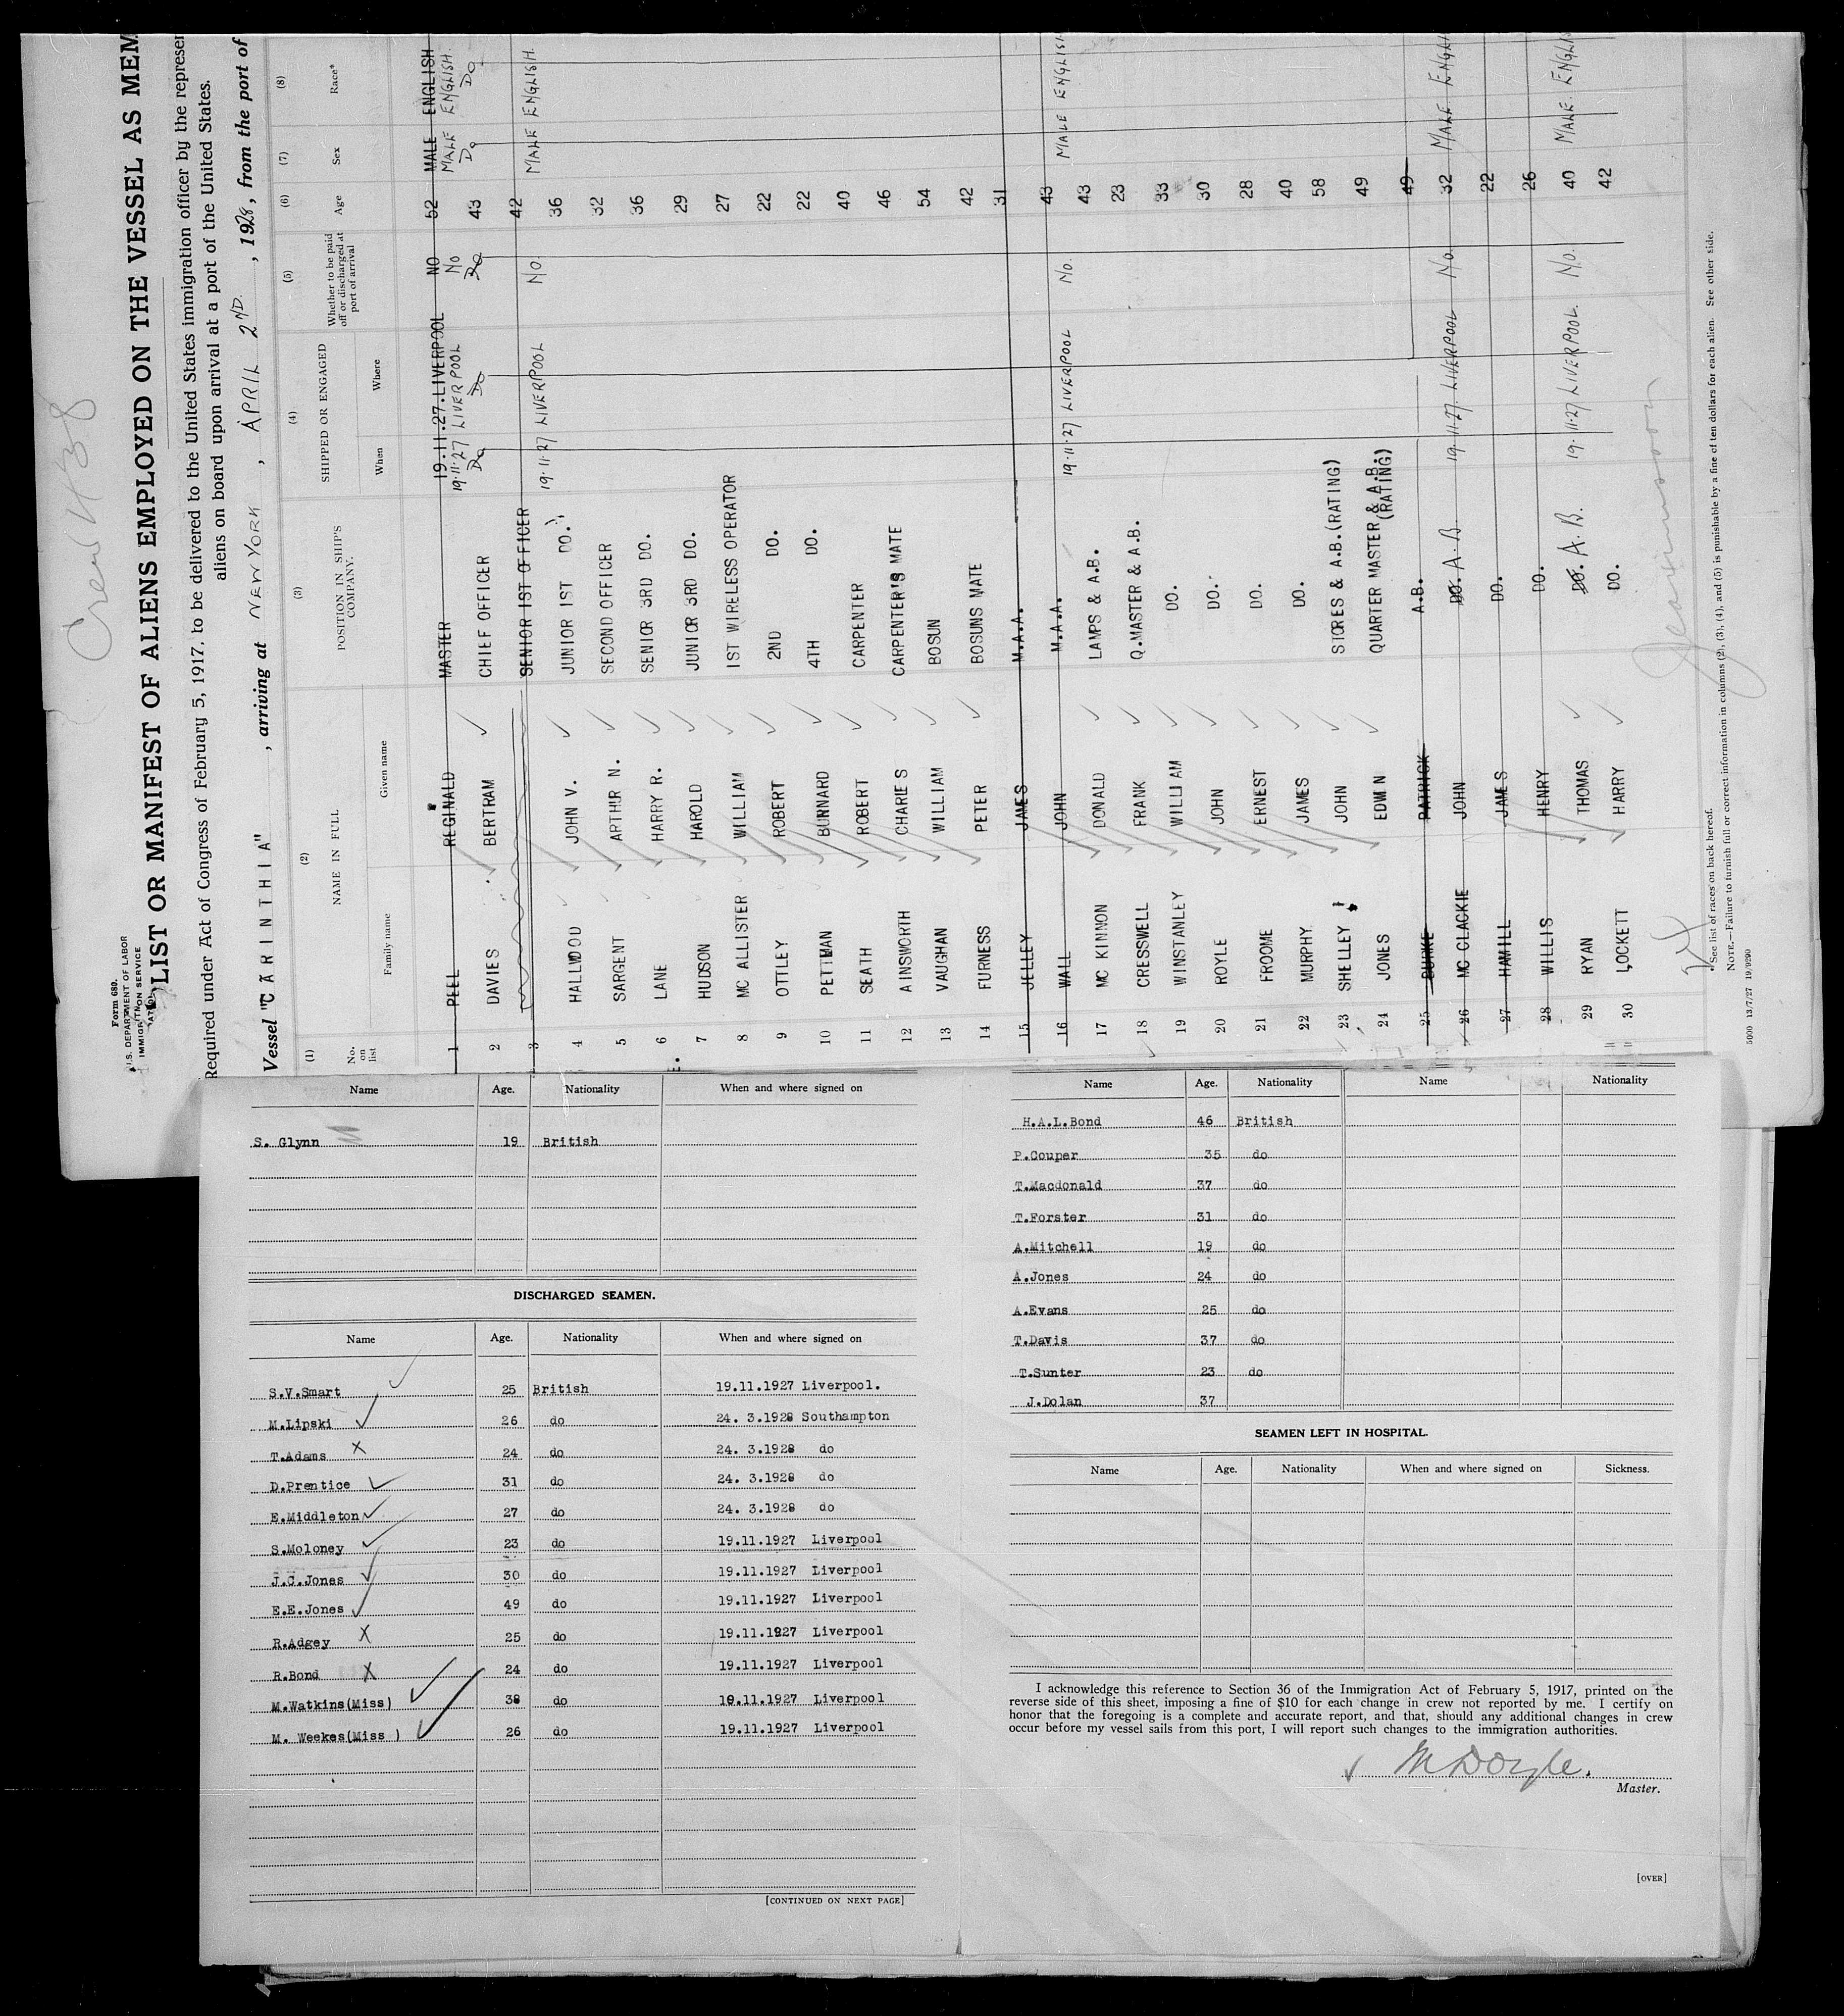 Crew 438
Form 680.
U.S. DEPARTMENT OF LABOR
IMMIGRATION SERVICE
LIST OR MANIFEST OF ALIENS EMPLOYED ON THE VESSEL AS MEM
Required under Act of Congress of February 5, 1917, to be delivered to the United States immigration officer by the represen
aliens on board upon arrival at a port of the United States.
Vessel "CARINTHIA" , arriving at NEW YORK , APRIL 2ND , 1928, from the port of
(1) (2) (3) (4) (5) (6) (7) (8)
No. on list NAME IN FULL POSITION IN SHIP'S COMPANY. SHIPPED OR ENGAGED Whether to be paid off or discharged at port of arrival Age Sex Race*
Family name Given name When Where
1 PEEL REGINALD MASTER 19.11.27. LIVERPOOL NO 52 MALE ENGLISH
19.11.27 LIVERPOOL NO MALE ENGLISH.
2 DAVIES BERTRAM CHIEF OFFICER Do Do Do 43 Do Do
3 SENIOR 1ST OFFICER 42
19.11.27 LIVERPOOL NO. MALE ENGLISH.
4 HALLWOOD JOHN V. JUNIOR 1ST DO. 36
5 SARGENT ARTHUR N. SECOND OFFICER 32
6 LANE HARRY R. SENIOR 3RD DO. 36
7 HUDSON HAROLD JUNIOR 3RD DO. 29
8 MC ALLISTER WILLIAM 1ST WIRELESS OPERATOR 27
9 OTTLEY ROBERT 2ND DO. 22
10 PETTMAN BUNNARD 4TH DO. 22
11 SEATH ROBERT CARPENTER 40
12 AINSWORTH CHARLES CARPENTER'S MATE 46
13 VAUGHAN WILLIAM BOSUN 54
14 FURNESS PETER BOSUNS MATE 42
15 JELLEY JAMES M.A.A. 31
16 WALL JOHN M.A.A. 43
19.11.27 LIVERPOOL NO. MALE ENGLISH
17 MC KINNON DONALD LAMPS & A.B. 43
18 CRESSWELL FRANK Q.MASTER & A.B. 23
19 WINSTANLEY WILLIAM DO. 33
20 ROYLE JOHN DO. 30
21 FROOME ERNEST DO. 28
22 MURPHY JAMES DO. 40
23 SHELLEY JOHN STORES & A.B.(RATING) 58
24 JONES EDWIN QUARTER MASTER & A.B. (RATING) 49
25 BURKE PATRICK A.B. 49
26 MC CLACKIE JOHN DO. A.B 19.11.27. LIVERPOOL No. 32 MALE ENGLI
27 HAMILL JAMES DO. 22
28 WILLIS HENRY DO. 26
29 RYAN THOMAS DO. A.B. 19.11.27 LIVERPOOL. No. 40 MALE ENGLIS
30 LOCKETT HARRY DO. 42
*See list of races on back hereof.
NOTE.—Failure to furnish full or correct information in columns (2), (3), (4), and (5) is punishable by a fine of ten dollars for each alien. See other side.
5000 13/7/27 19/9290
Name Age. Nationality When and where signed on
S. Glynn 19 British
DISCHARGED SEAMEN.
Name Age. Nationality When and where signed on
S.V.Smart 25 British 19.11.1927 Liverpool.
M.Lipski 26 do 24. 3.1928 Southampton
T.Adams 24 do 24. 3.1928 do
D.Prentice 31 do 24. 3.1928 do
E.Middleton 27 do 24. 3.1928 do
S.Moloney 23 do 19.11.1927 Liverpool
J.C.Jones 30 do 19.11.1927 Liverpool
E.E.Jones 49 do 19.11.1927 Liverpool
R.Adgey 25 do 19.11.1927 Liverpool
R.Bond 24 do 19.11.1927 Liverpool
M.Watkins(Miss) 38 do 19.11.1927 Liverpool
M. Weekes(Miss ) 26 do 19.11.1927 Liverpool
[CONTINUED ON NEXT PAGE]
Name Age. Nationality Name Nationality
H.A.L.Bond 46 British
P.Couper 35 do
T.Macdonald 37 do
T.Forster 31 do
A.Mitchell 19 do
A.Jones 24 do
A.Evans 25 do
T.Davis 37 do
T.Sunter 23 do
J.Dolan 37
SEAMEN LEFT IN HOSPITAL.
Name Age. Nationality When and where signed on Sickness.
I acknowledge this reference to Section 36 of the Immigration Act of February 5, 1917, printed on the
reverse side of this sheet, imposing a fine of $10 for each change in crew not reported by me. I certify on
honor that the foregoing is a complete and accurate report, and that, should any additional changes in crew
occur before my vessel sails from this port, I will report such changes to the immigration authorities.
M Doyle.
Master.
[OVER]